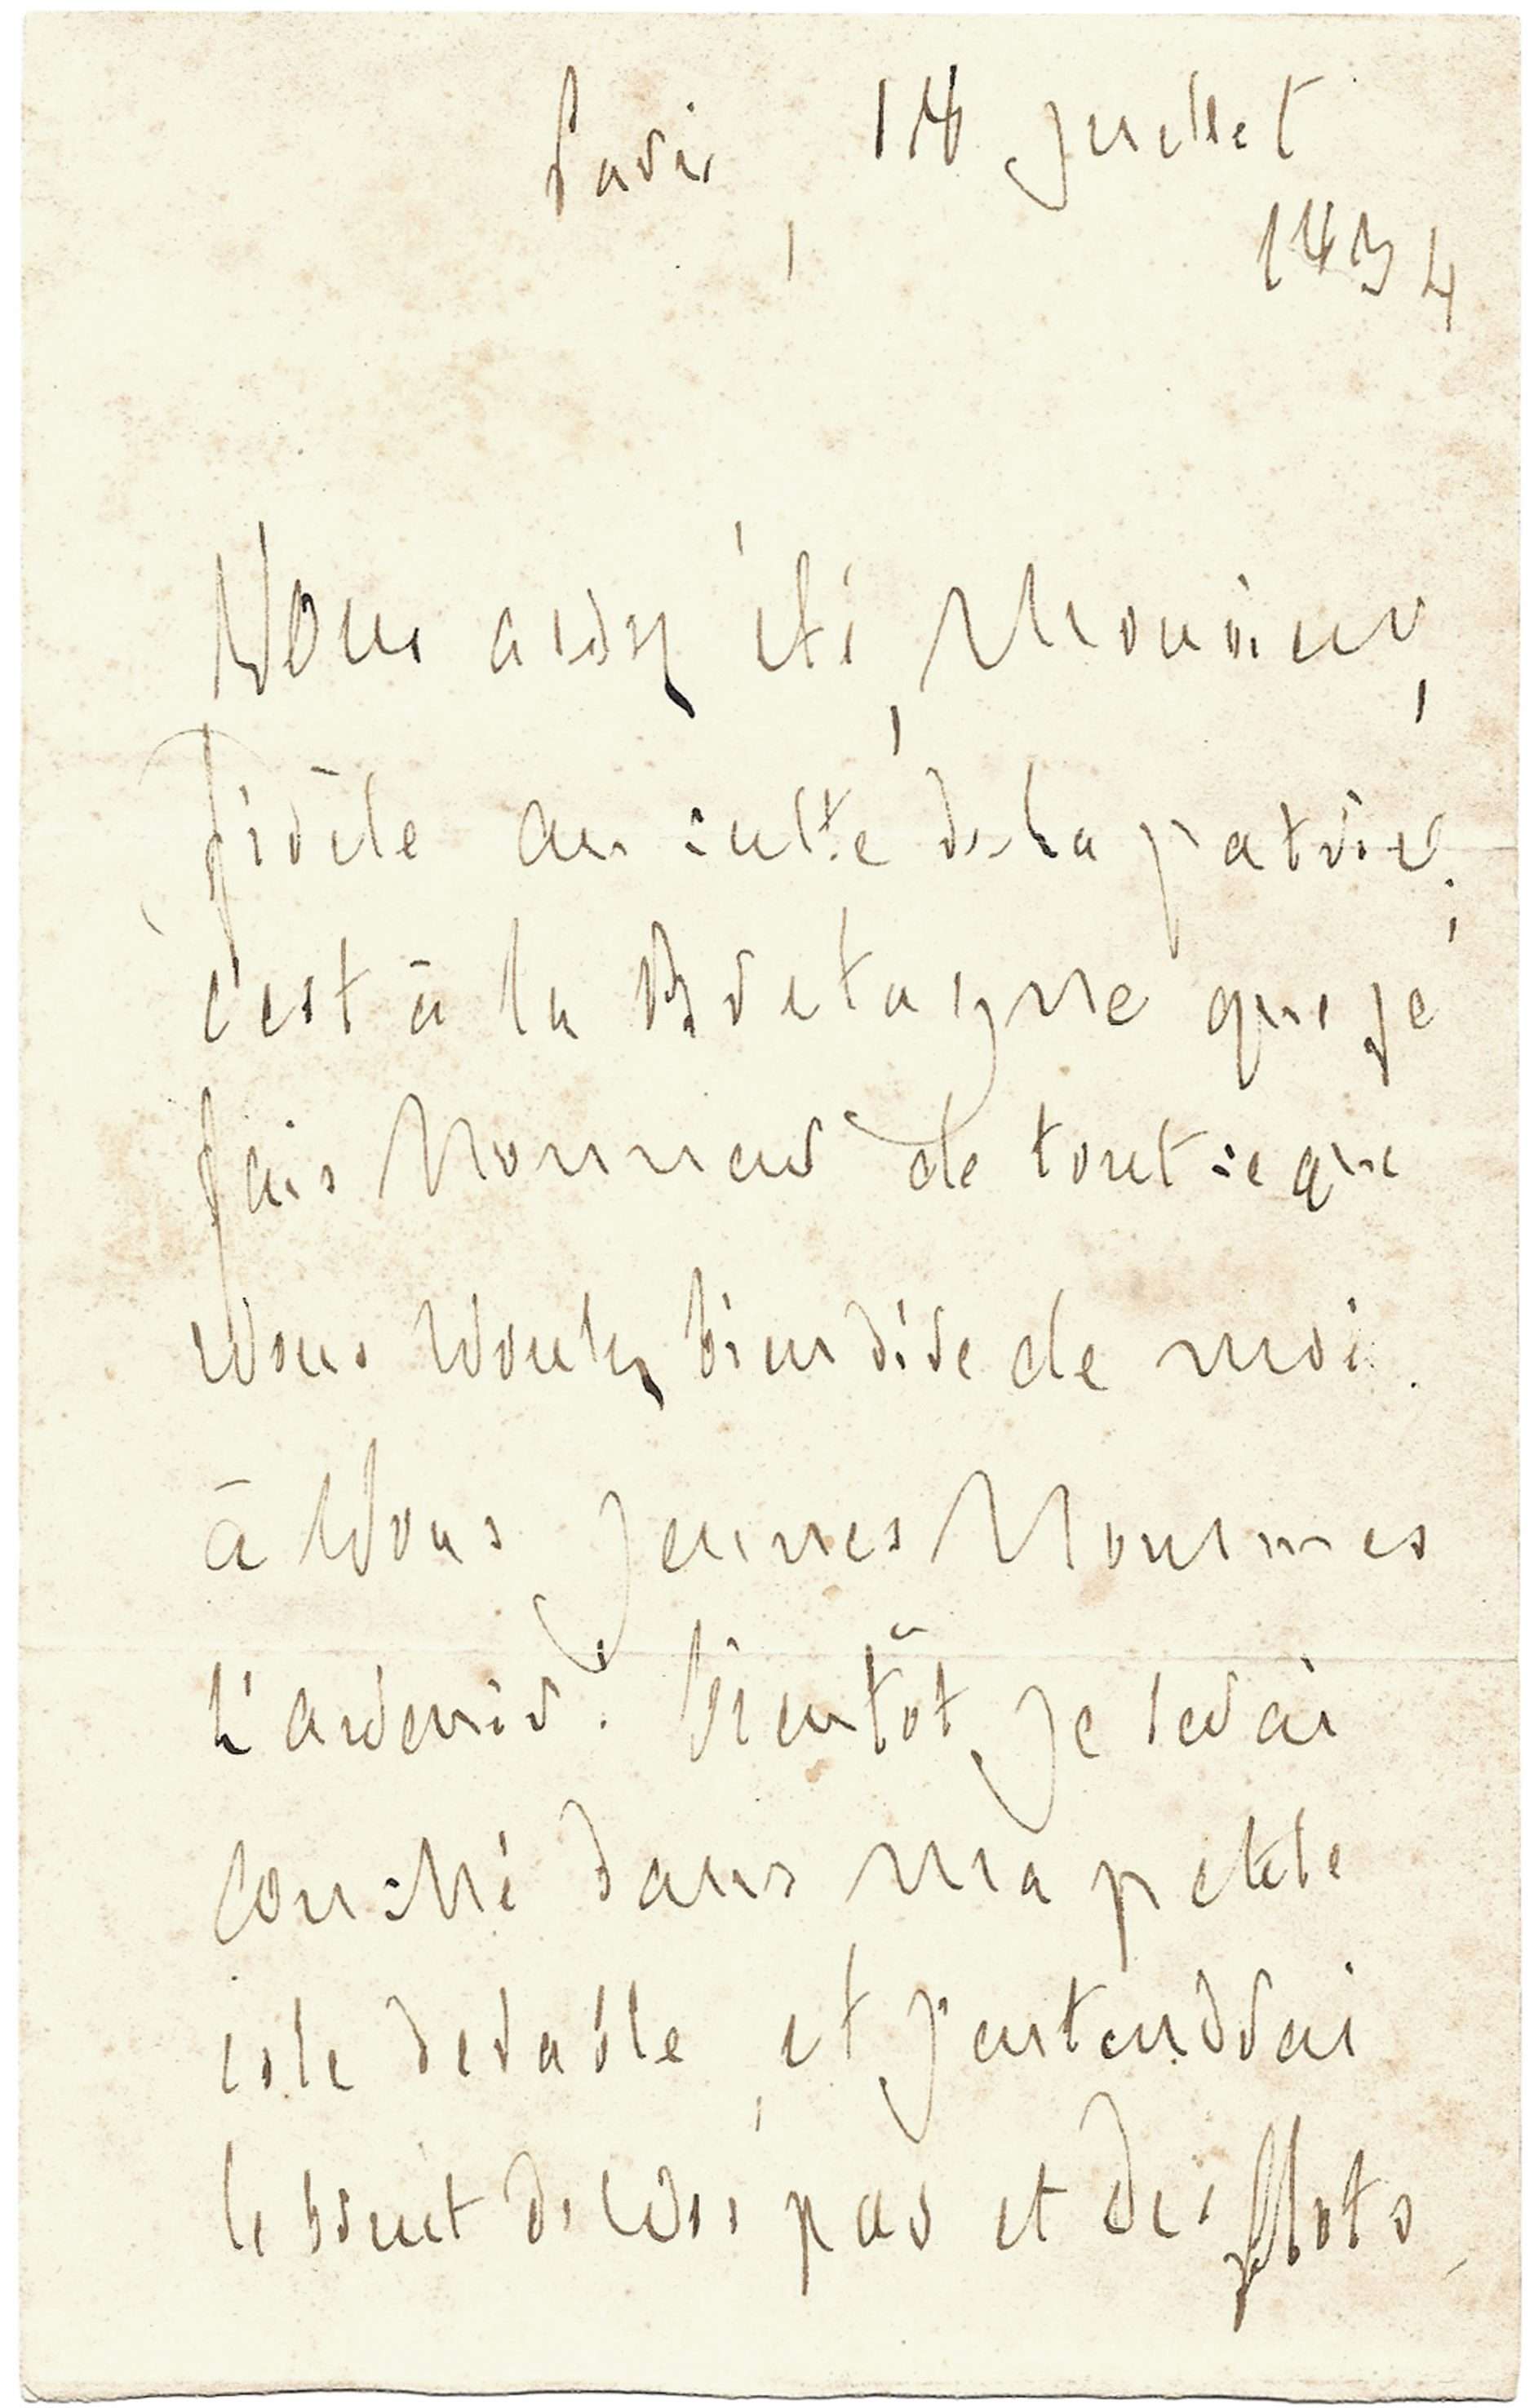 Paris, 18 juillet
1834
Vous avez été, Monsieur,
fidèle au culte de la patrie;
c'est à la Bretagne que je
fais honneur de tout ce que
vous voulez bien dire de moi.
à vous jeunes hommes
l'avenir. bientôt je serai
couché dans ma petite
isle de sable, et j'entendrai
le bruit de vos pas et des flots,